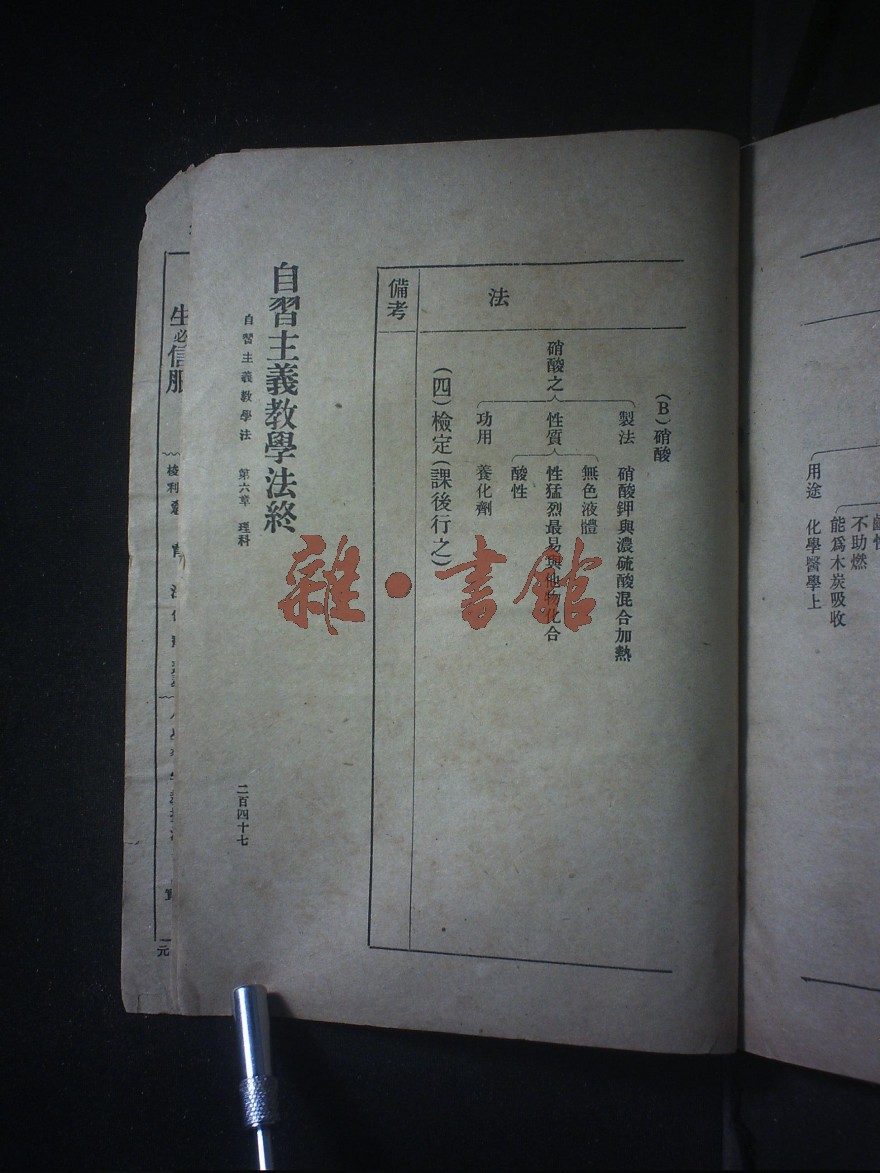 鹼性
不助燃
能爲木炭吸收
用途 化學醫學上
法
(B)硝酸
製法 硝酸鉀與濃硫酸混合加熱
無色液體
硝酸之 性質 性猛烈最易與他物化合
酸性
功用 養化劑
(四)檢定(課後行之)
備考
自習主義教學法終
自習主義教學法 第六章 理科
二百四十七
生必信服
一元
雜·書館